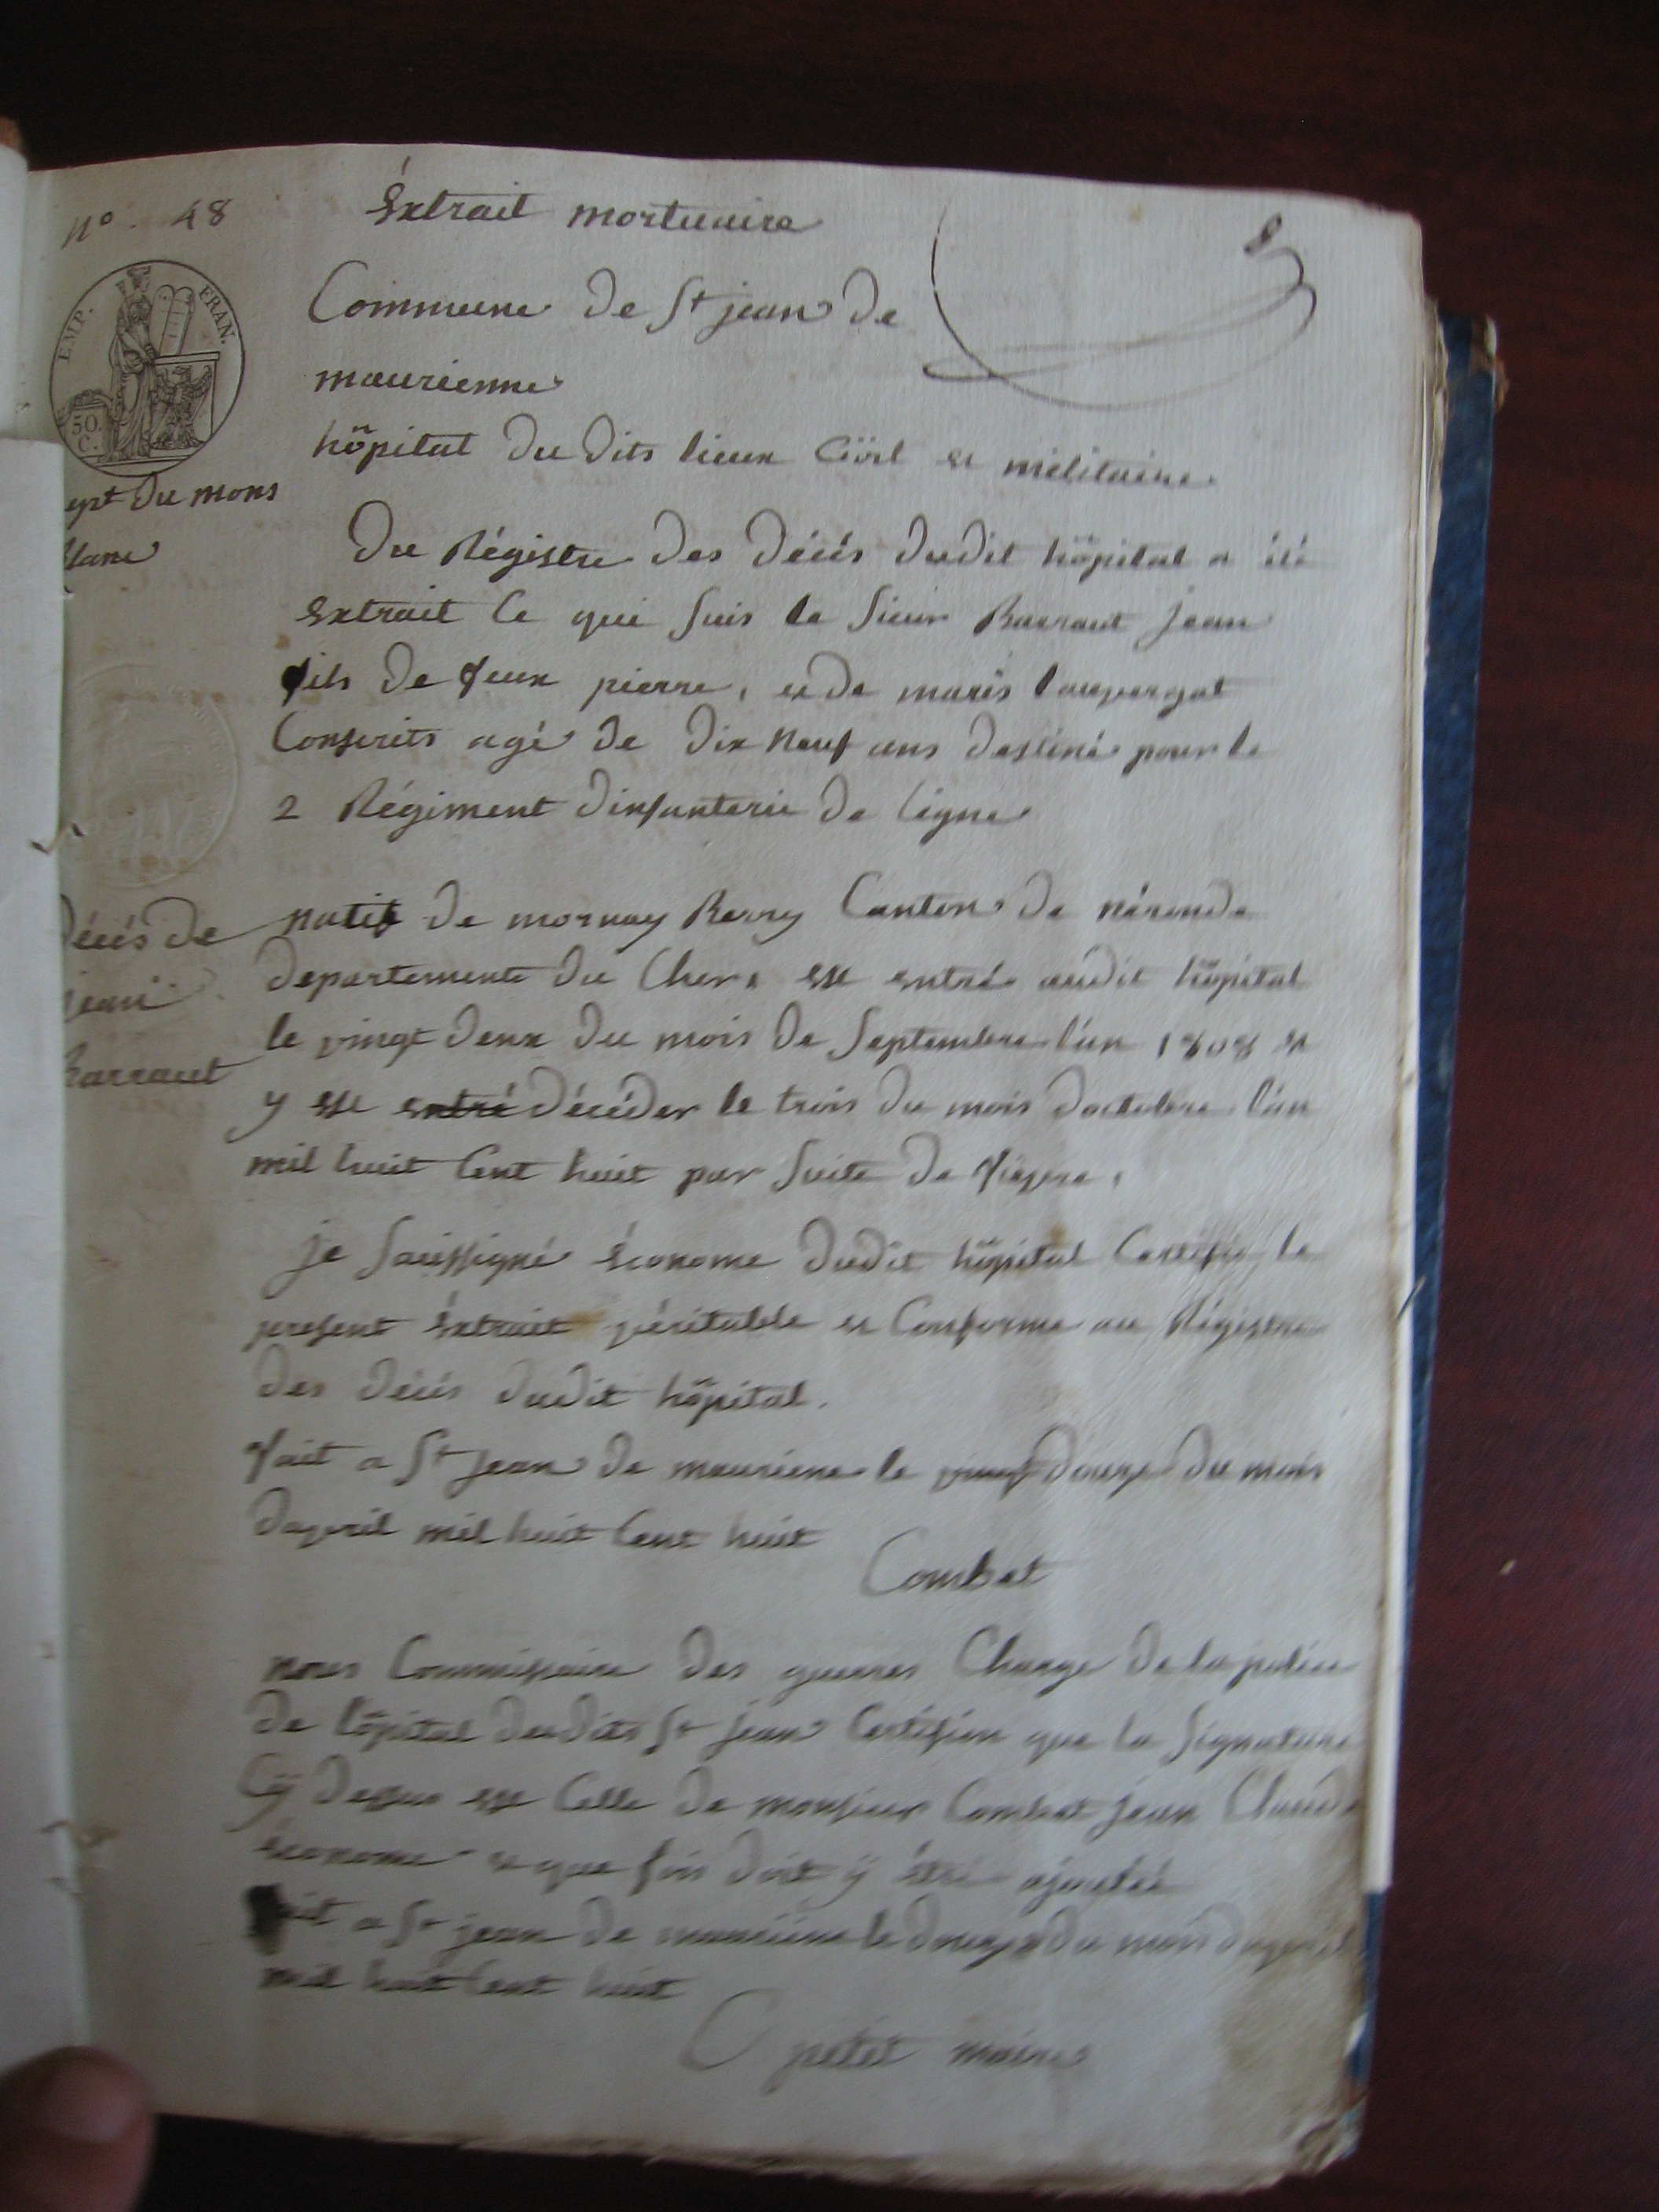 n° 48
Éxtrait mortuaire
8
Commune de St jean de
maurienne
EMP. FRAN.
50. C.
hôpital du dits lieux Civil et militaire
ept du mons
blanc
Du Régistre des décés dudit hôpital a été
Extrait Ce qui suis le sieur Barraut jean
fils de feux pierre, et de marie
Conscrits agé de dix neuf ans destiné pour le
2 Régiment dinfanterie de ligne
décés de
jean
Barraut
natif de mornay Berry Canton de néronde
departements du Cher, est entré audit hôpital
le vingt deux du mois de Septembre l'an 1808 et
y est entré décéder le trois du mois doctobre l'an
mil huit Cent huit par suite de fièvre,
je soussigné économe dudit hôpital Certifie le
present éxtrait véritable et Conforme au Régistre
des décés dudit hôpital.
fait a St jean de mauriene le douze du mois
davril mil huit Cent huit
Combet
nous Commissaire des guerres Charge de la police
de l'ôpital dudits St jean Certifion que la signature
Cÿ dessus est Celle de monsieur Combet jean Claude
économe et que fois doit ÿ être ajoutée
fait a St jean de mauriene le douze du mois davril
mil huit Cent huit
C petit maire